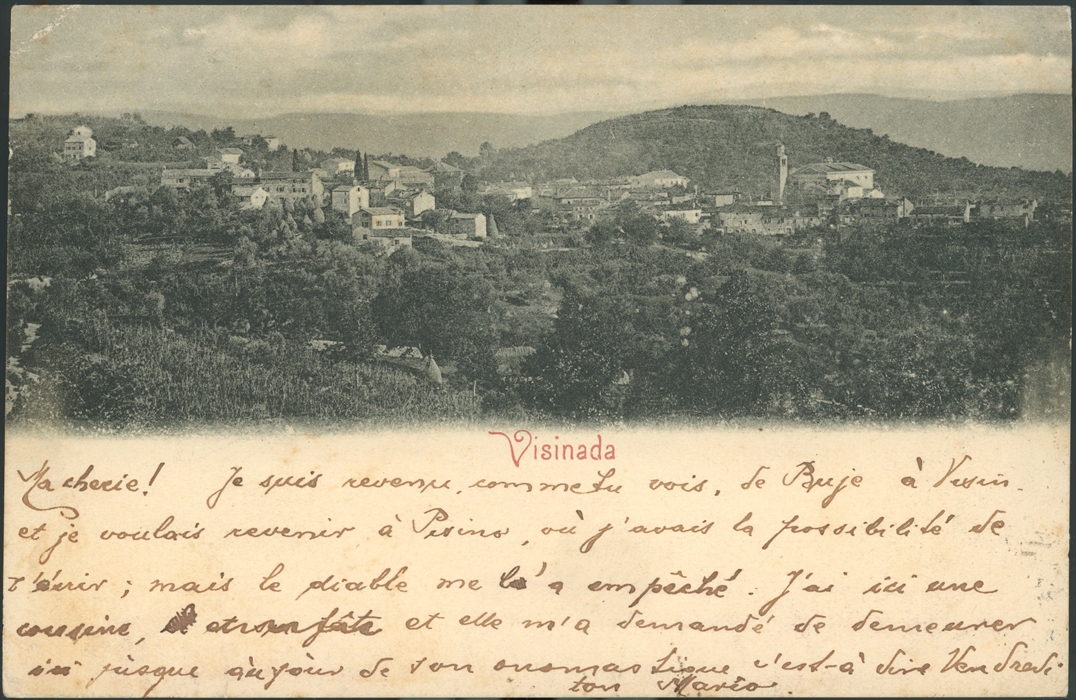 Visinada
Ma cherie! Je suis revenu, comme tu vois, de Buje à Visin.
et je voulais revenir à Pisino, où j'avais la possibilité de
t'écrir; mais le diable me l'a empêché. J'ai ici une
cousine, et elle m'a demandé de demeurer
ici jusque àu jour de son onomastique c'est-à dire Vendredi
ton Mario.